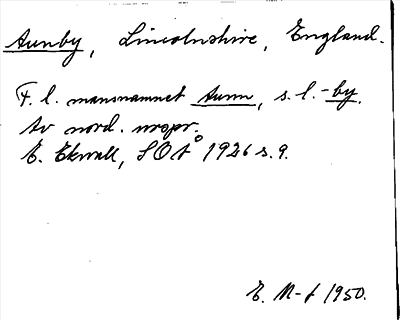 Aunby, Lincolnshire, England.
F. l. mansnamnet Aunn, s. l. -by.
Av nord. urspr.
E. Ekwall, SOÅ 1926 s. 9.
E. M-t 1950.